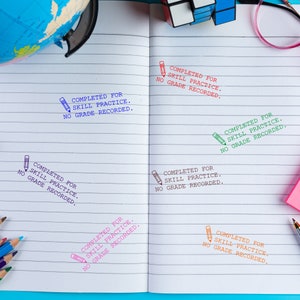 COMPLETED FOR
SKILL PRACTICE.
NO GRADE RECORDED.
COMPLETED FOR
SKILL PRACTICE.
NO GRADE RECORDED.
COMPLETED FOR
SKILL PRACTICE.
NO GRADE RECORDED.
COMPLETED FOR
SKILL PRACTICE.
NO GRADE RECORDED.
COMPLETED FOR
SKILL PRACTICE.
NO GRADE RECORDED.
COMPLETED FOR
SKILL PRACTICE.
NO GRADE RECORDED.
COMPLETED FOR
SKILL PRACTICE.
NO GRADE RECORDED.